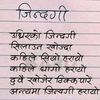 जिन्दगी
उध्रिएको जिन्दगी
सिलाउन खोज्दा
कहिले सियो हरायो
कहिले धागो हरायो
दुवै खोजेर ठिक्क पारें
अन्त्यमा जिन्दगी हरायो